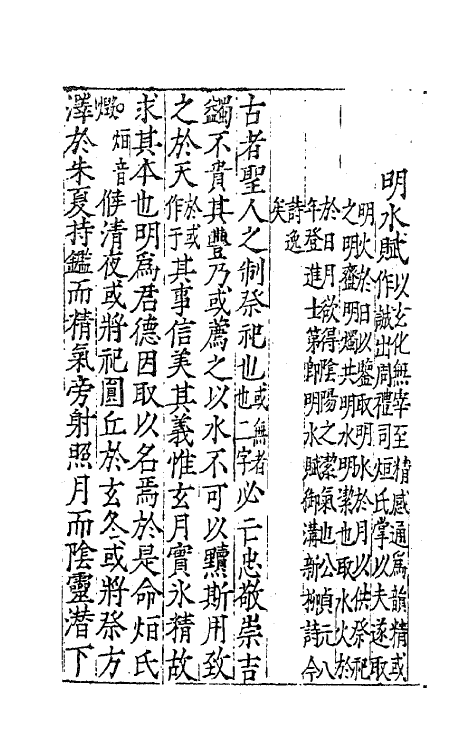 明水賦
以玄化無宰至精感通爲韻精或
作誠出周禮司烜氏掌以夫遂取
明火於日以鑒取明水於月以供祭祀
之明齍明燭共明水明潔也取水火於
於日月欲得陰陽之潔氣也公貞元八
年登進士第即明水賦御溝新栁詩今
詩逸
矣
古者聖人之制祭祀也或無者也二字必忠敬崇吉
蠲不貴其豐乃或薦之以水不可以黷斯用致
之於天於或作于其事信美其義惟玄月實水精故
求其本也明爲君德因取以名焉於是命烜氏
烜音燬俟清夜或將祀圓丘於玄冬或將祭方
澤於朱夏持鑑而精氣旁射照月而陰靈潛下